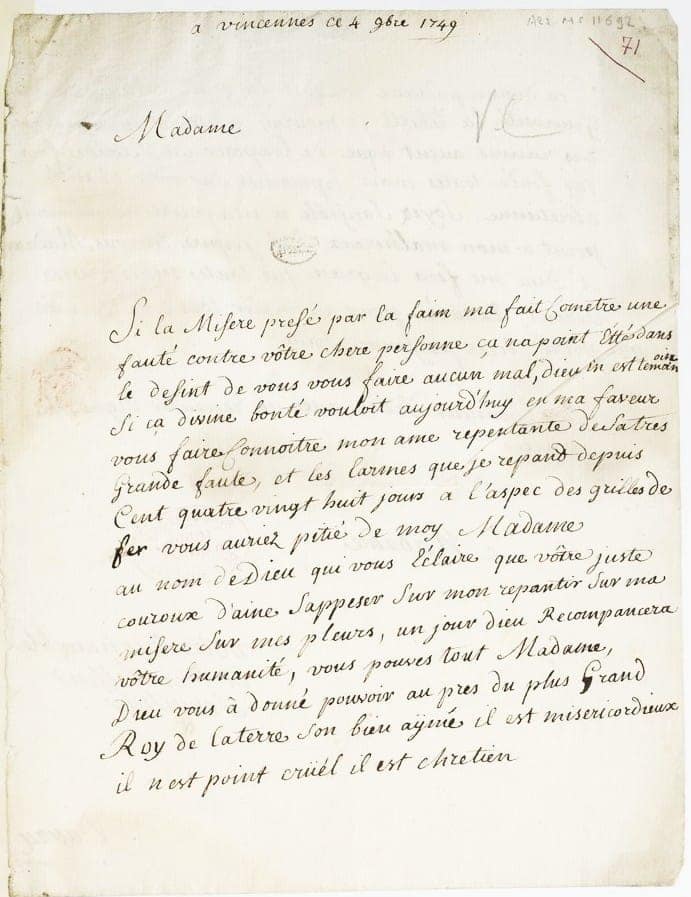 a vincennes ce 4 9bre 1749
Ars. MS 11692
71
Madame
Si la Misere presé par la faim ma fait Cometre une
fauté contre vôtre chere personne ça na point Etté dans
le desint de vous vous faire aucun mal, dieu in est temoin
Si ça divine bonté vouloit aujourd'huy en ma faveur
vous faire Connoitre mon ame repentante de Satres
Grande faute, et les larmes que je repand depuis
Cent quatre vingt huit jours a l'aspec des grilles de
fer vous auriez pitié de moy Madame
au nom de Dieu qui vous Eclaire que vôtre juste
couroux d'aine Sappeser Sur mon repantir Sur ma
misere Sur mes pleurs, un jour dieu Recompancera
vôtre humanité, vous pouves tout Madame,
Dieu vous à donné pouvoir au pres du plus Grand
Roy de laterre Son bien aÿmé il est misericordieux
il n est point crüel il est chretien